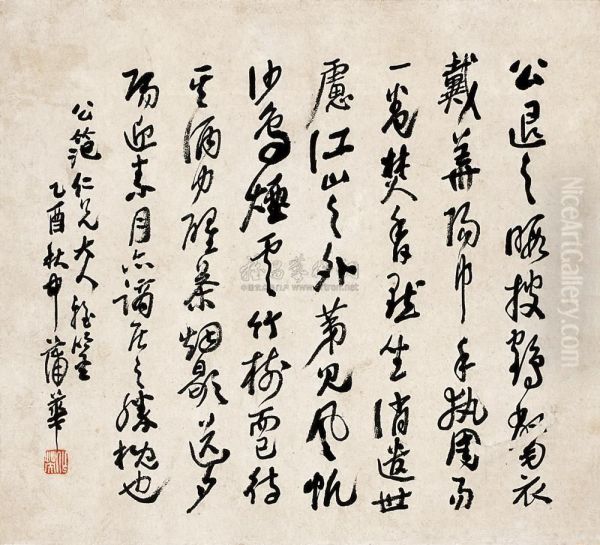 公退之暇披鶴氅衣
戴華陽巾手執周易
一卷焚香默坐消遣世
慮江山之外第見風帆
沙鳥煙雲竹樹而已待
其酒力醒茶烟歇送夕
陽迎素月亦謫居之勝概也
公範仁兄大人雅鑒
乙酉秋中蒲華
NiceArtGallery.com
NiceArtGallery.com